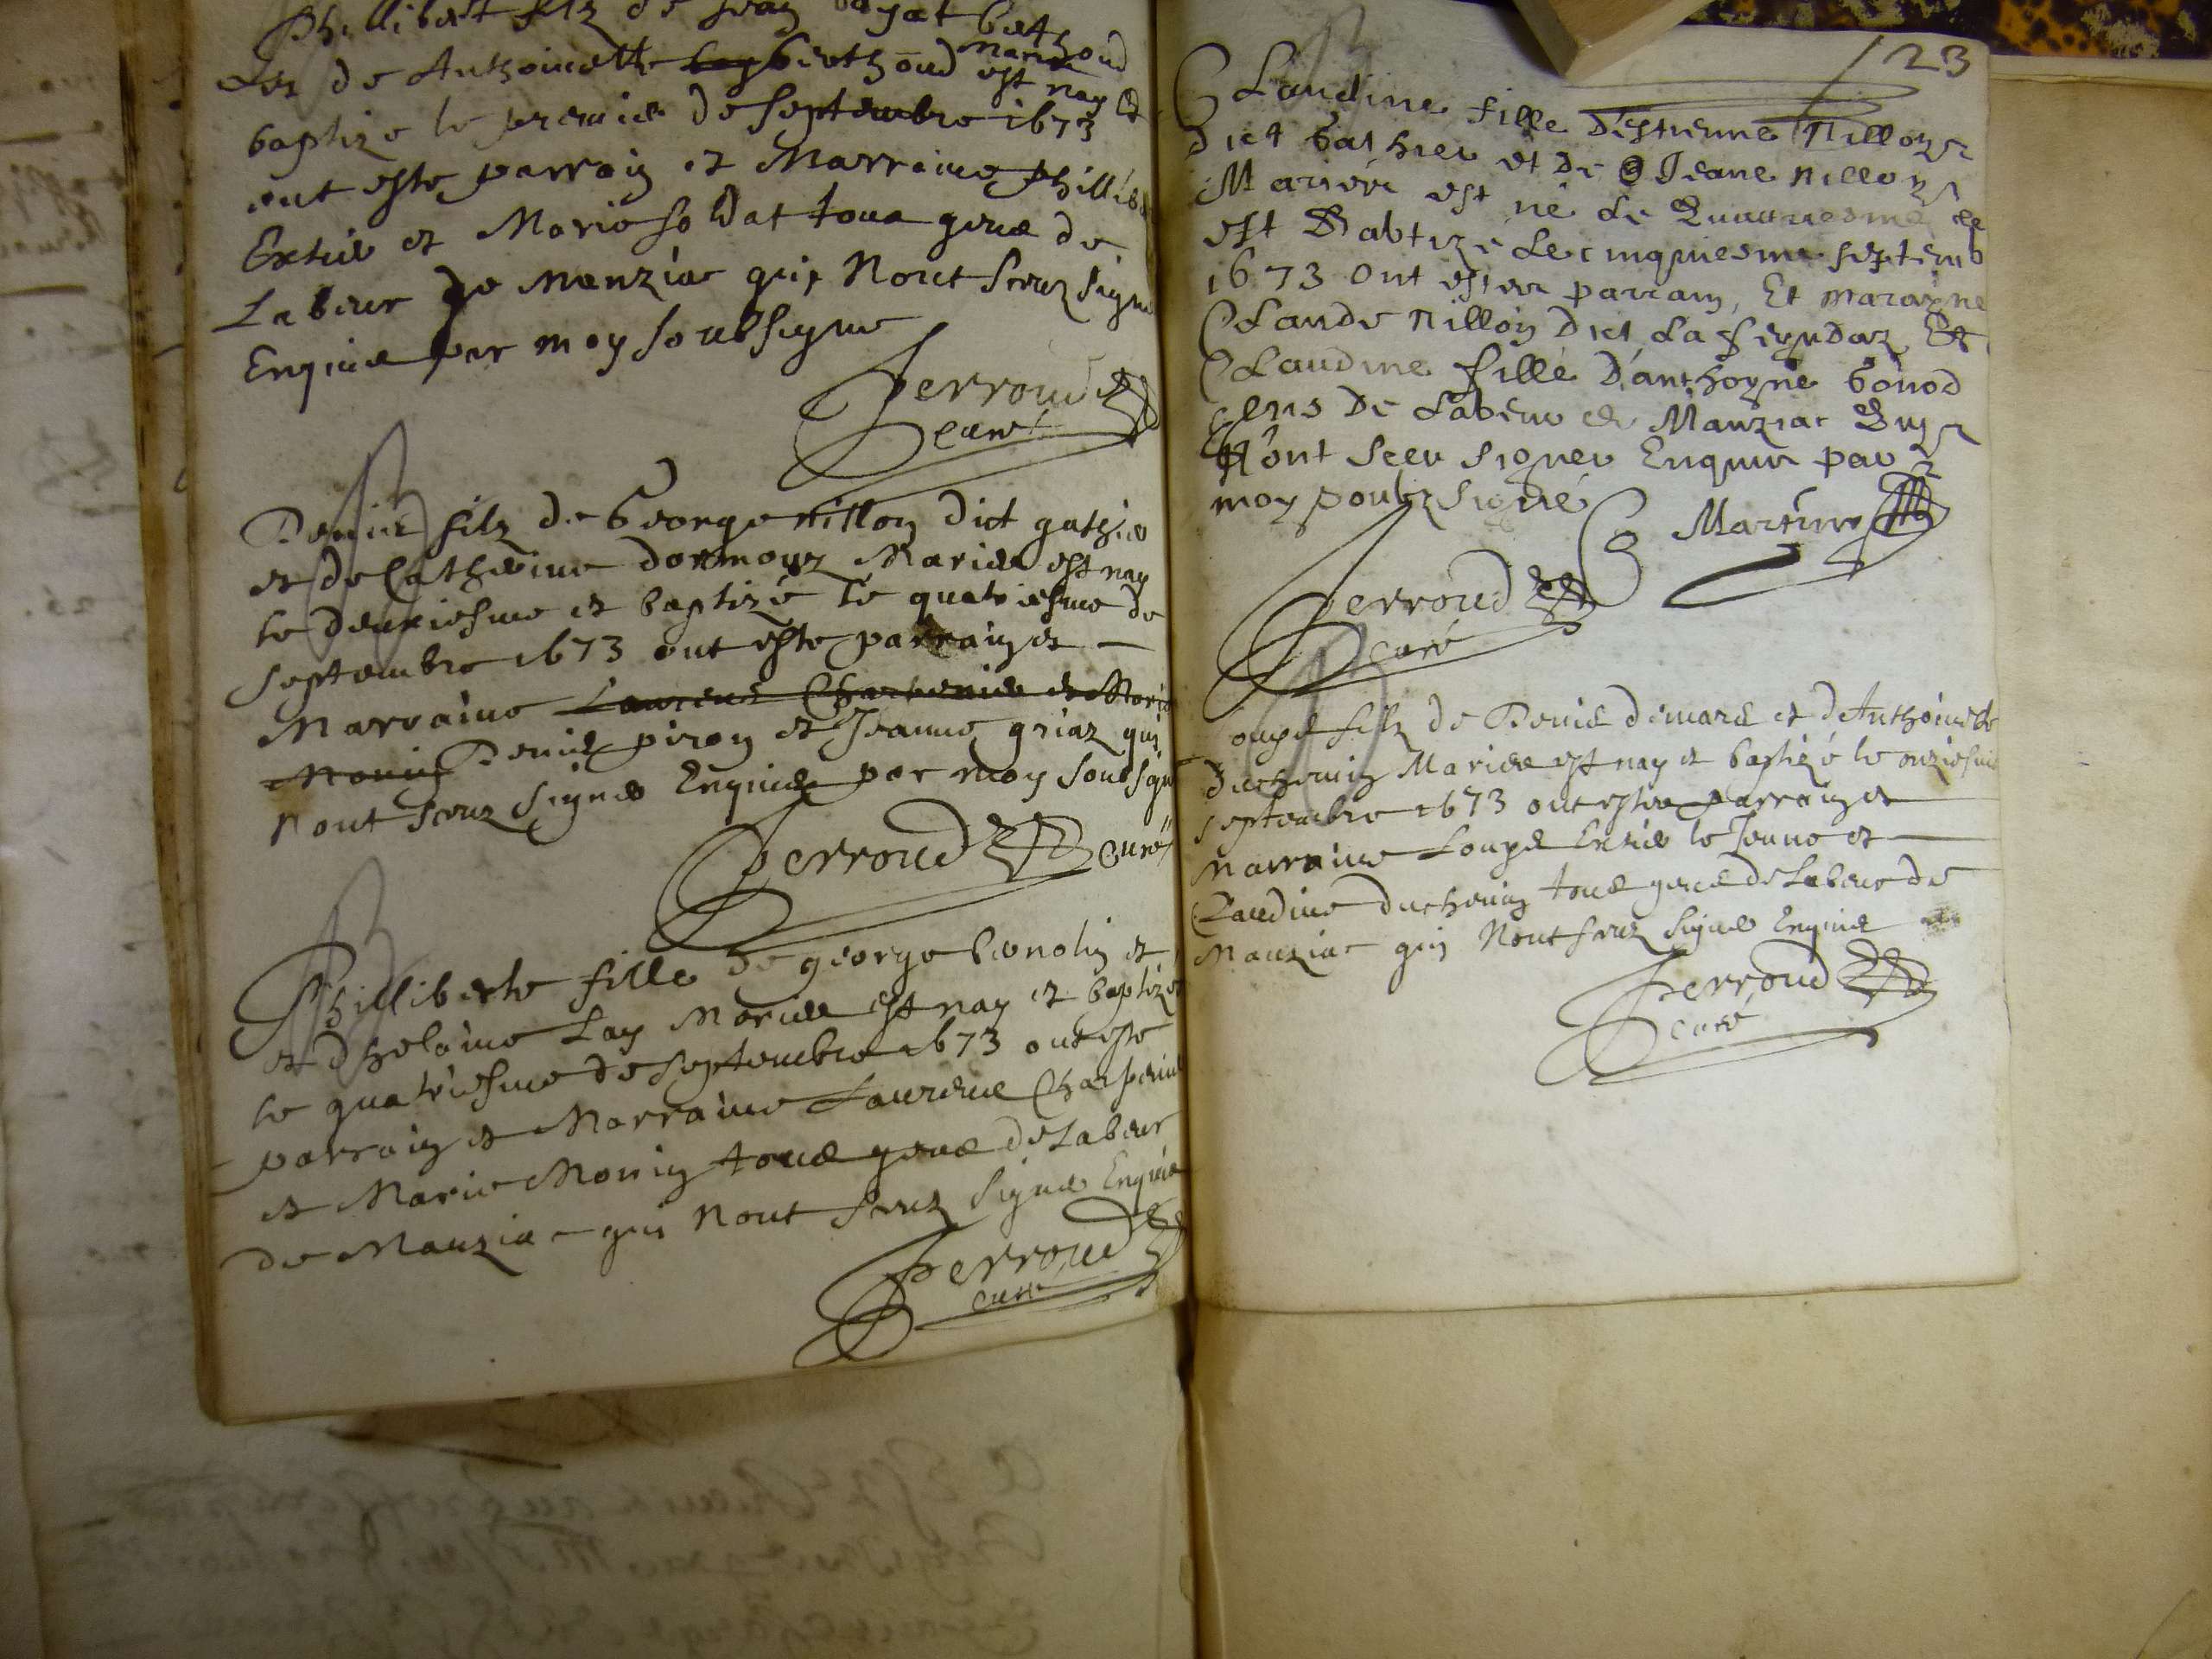 Phillibert filz de Jean bayat berthoud
et de Anthoinette berthoud mariez est nay et
baptize le premier de septembre 1673
ont este parrain et Marraine philib
Extier et Marie soldat tous gens de
Labeur de Manziac qui Nont sceuz signe
Enquis par moy soubsigne
Perroud
curé
Denis filz de George nillon dict gathier
et de Catherine dormouz Mariez est nay
le deuxiesme et baptizé le quatriesme de
septembre 1673 ont este parrain et
Marraine Laurens Charpenie et Marie
Monin Denis piron et Jeanne griaz qui
Nont sceuz signer Enquis par moy soubsigne
Perroud curé
Philliberte fille de george benolin et
et dhelaine Lay Mariez est nay et baptizé
le quatriesme de septembre 1673 ont este
parrain et Marraine Laurens Charpenie
et Marie Monin tous gens de Labeur
de Manziac qui Nont sceuz signer Enquis
Perroud
curé
123
Claudine fille d'estienne Nillon
dict Gathier et de Jeane nillon
Mariéz est né Le Quatriesme et
est Babtizé Le cinquiesme septemb
1673 Ont estez parrain, Et maraine
Claude nillon Dict La feundaz Et
Claudine fille D'anthoyne Gonod
gens De Labeur de Manziac Quy
N'ont sceu signer Enquis par
moy soubz signé
Martin
Perroud
curé
Loups filz de Denis demars et d'Anthoinette
Duchenin Mariez est nay et baptizé le onziesme
septembre 1673 ont estez parrain et
Marraine Loups Extier le Jeune et
Claudine duchenin tous gens de Labeur de
Manziac qui Nont sceuz signer Enquis
Perroud
curé